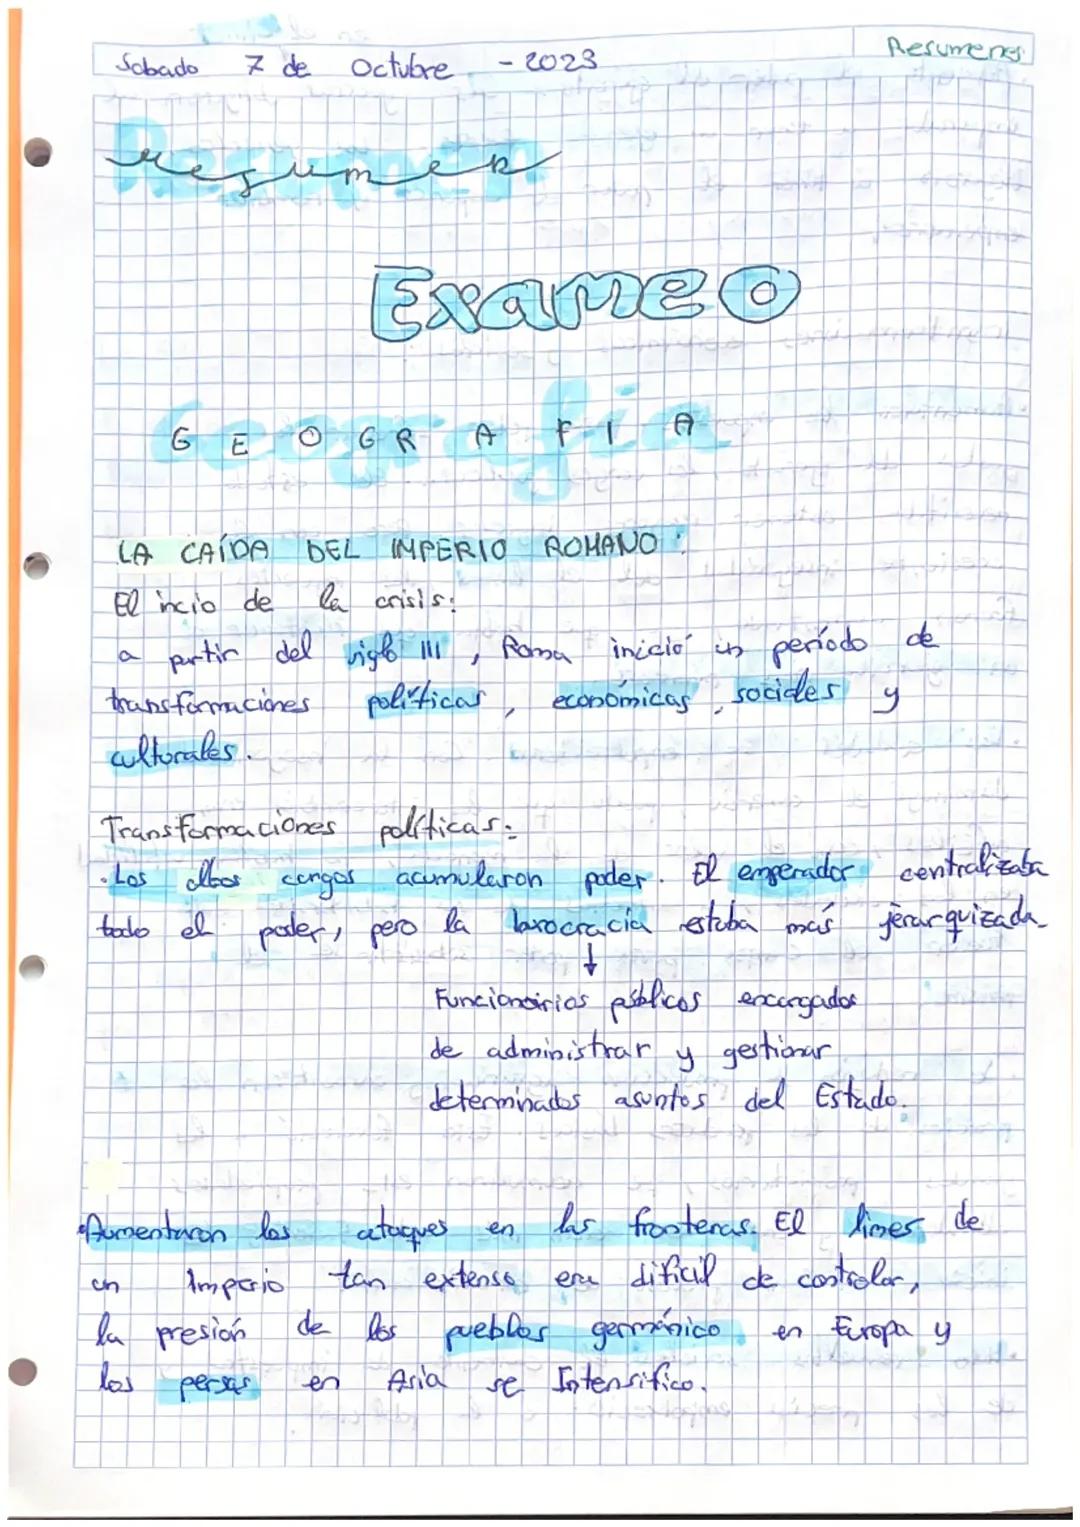 Sabado 7 de Octubre - 2023
Resumenes
Resumen
Examen
GEOGRAFIA
LA CAÍDA DEL IMPERIO ROMANO:
El incio de la crisis:
a partir del siglo III, Roma inició un período de
transformaciones políticas, económicas, sociales y
culturales.
Transformaciones políticas:
·Los altos cargos acumularon poder. El emperador centralizaba
todo el poder, pero la burocracia estaba más jerarquizada
↓
Funcionarios públicos encargados
de administrar y gestionar
determinados asuntos del Estado.
·Aumentaron los ataques en las fronteras. El limes de
un Imperio tan extenso era dificil de controlar,
la presión de los pueblos germánico en Europa y
los persas en Asia se Intensifico.